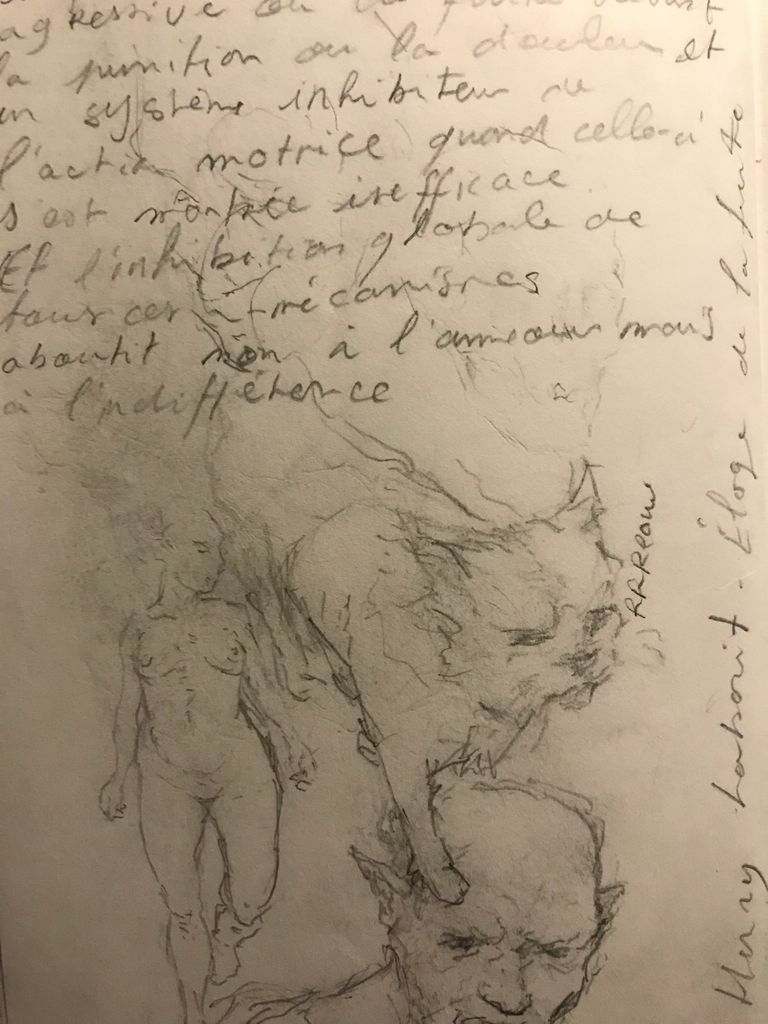 agressive ou de fuite devant
la punition ou la douleur et
un système inhibiteur de
l'action motrice quand celle-ci
s'est montrée inefficace
Et l'inhibition globale de
tous ces mécanismes
aboutit non à l'amour mais
à l'indifférence
RRReow
Henry Laborit - Éloge de la fuite